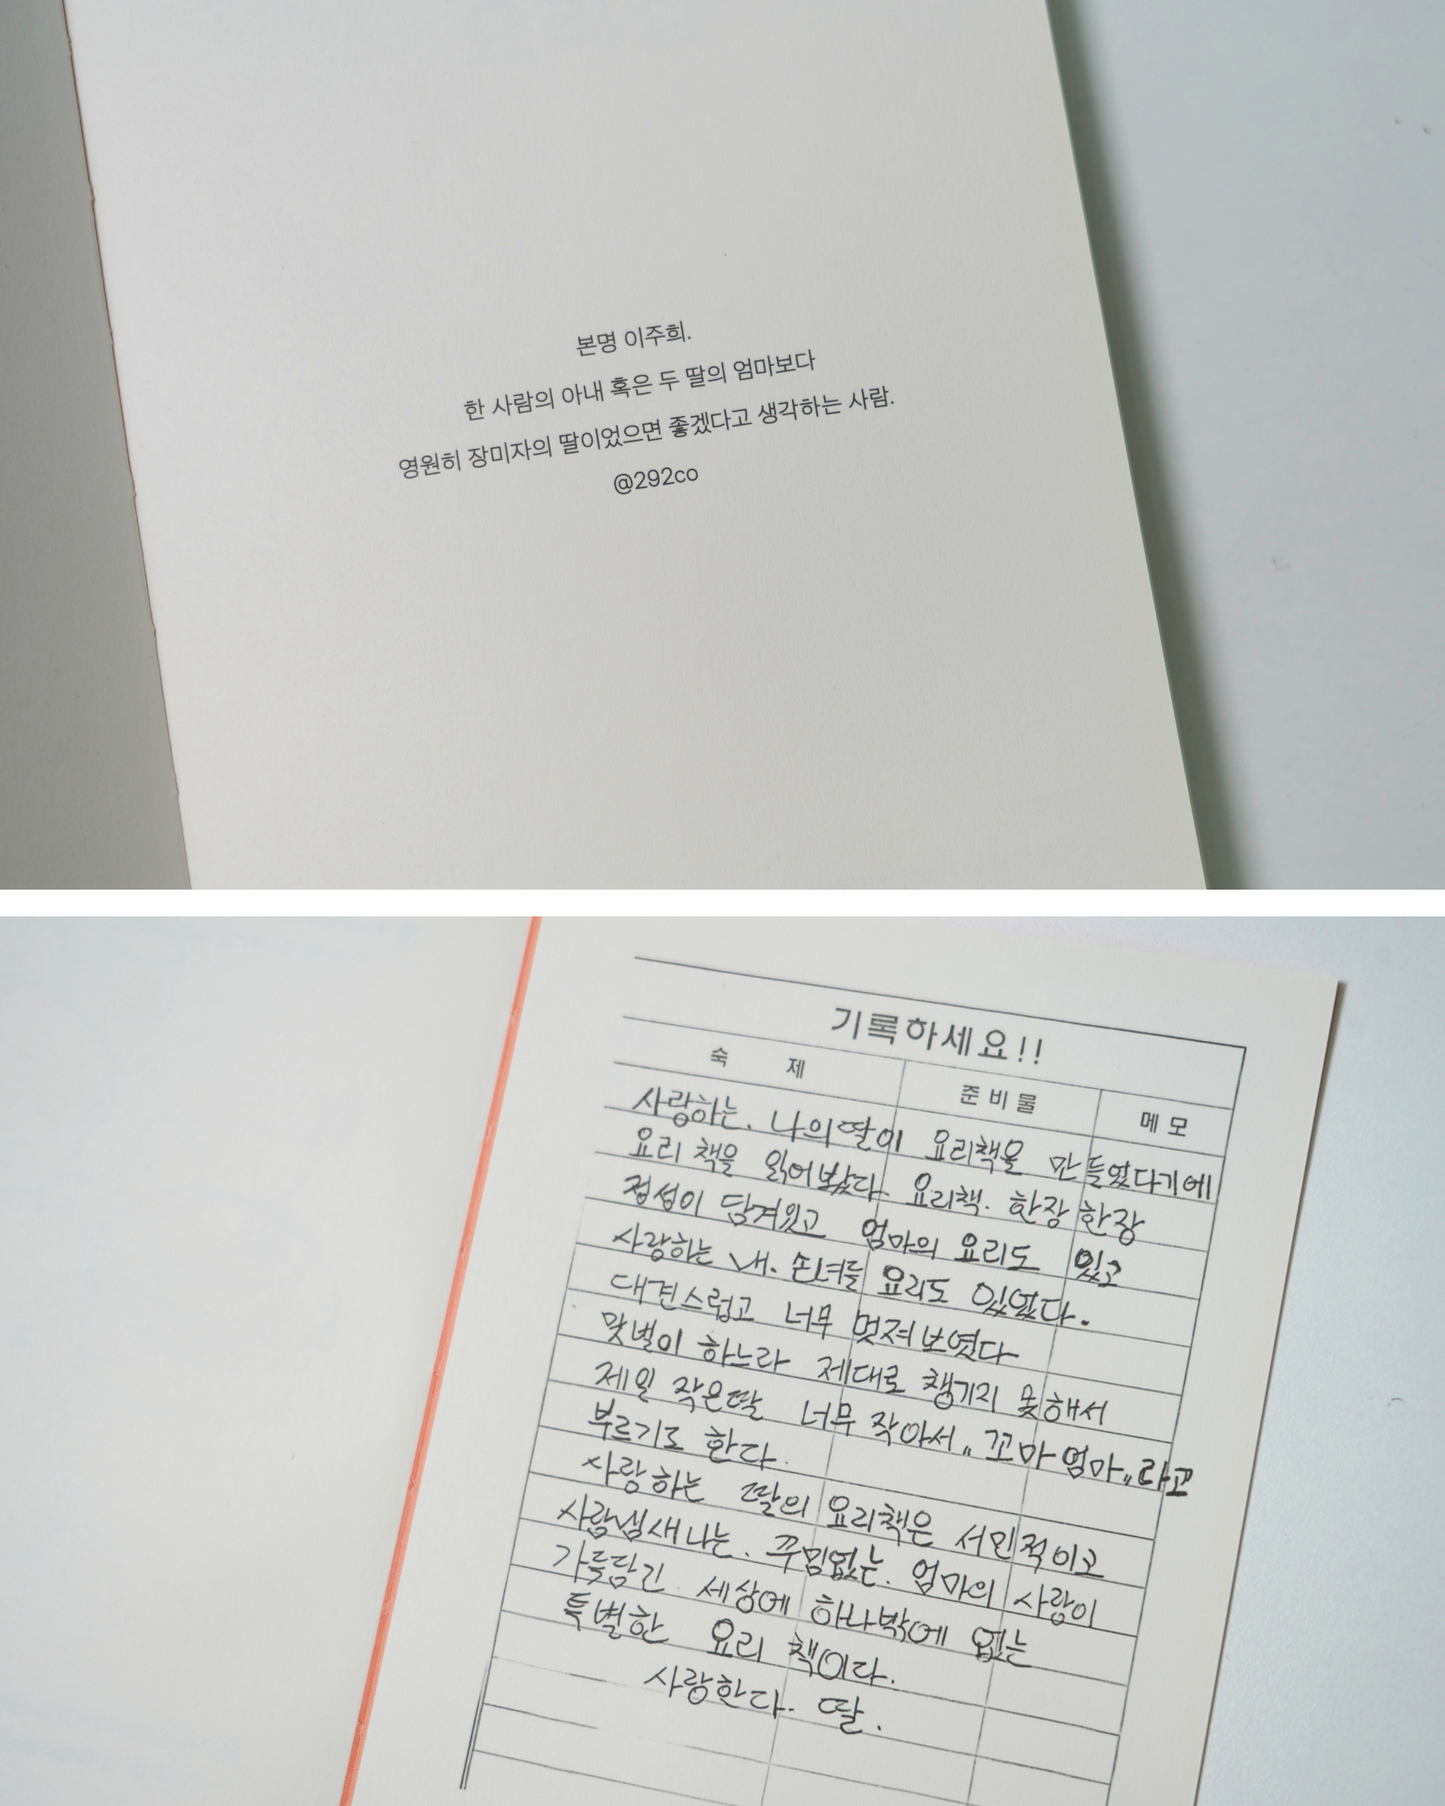 본명 이주희.
한 사람의 아내 혹은 두 딸의 엄마보다
영원히 장미자의 딸이었으면 좋겠다고 생각하는 사람.
@292co
기록하세요!!
숙 제 준비물 메모
사랑하는. 나의딸이 요리책을 만들었다기에
요리 책을 읽어봤다. 요리책. 한장 한장
정성이 담겨있고 엄마의 요리도 있고
사랑하는 내. 손녀들 요리도 있었다.
대견스럽고 너무 멋져보였다
맞벌이 하느라 제대로 챙기지 못해서
제일 작은딸 너무 작아서 "꼬마엄마"라고
부르기도 한다.
사랑하는 딸의 요리책은 서민적이고
사람냄새나는. 꾸밈없는. 엄마의 사랑이
가득담긴. 세상에 하나밖에 없는
특별한 요리 책이다.
사랑한다. 딸.